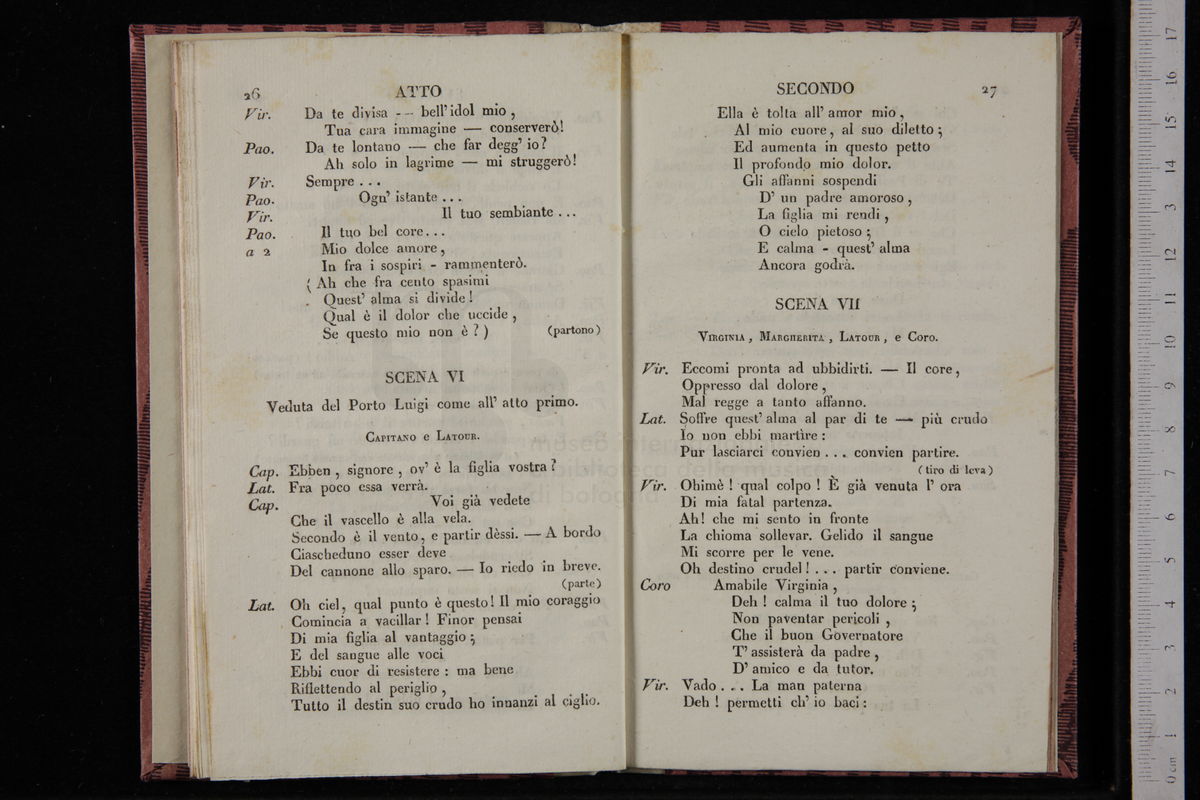 26 ATTO
Vir. Da te divisa -- bell' idol mio ,
Tua cara immagine — conserverò!
Pao. Da te lontano — che far degg' io?
Ah solo in lagrime — mi struggerò!
Vir. Sempre . . .
Pao. Ogn' istante . . .
Vir. Il tuo sembiante . . .
Pao. Il tuo bel core. . .
a 2 Mio dolce amore,
In fra i sospiri - rammenterò.
( Ah che fra cento spasimi
Quest' alma si divide !
Qual è il dolor che uccide ,
Se questo mio non è ? ) (partono)
SCENA VI
Veduta del Porto Luigi come all' atto primo.
CAPITANO e LATOUR.
Cap. Ebben , signore , ov' è la figlia vostra ?
Lat. Fra poco essa verrà.
Cap. Voi già vedete
Che il vascello è alla vela.
Secondo è il vento, e partir dèssi. — A bordo
Ciascheduno esser deve
Del cannone allo sparo. — Io riedo in breve.
(parte)
Lat. Oh ciel, qual punto è questo! Il mio coraggio
Comincia a vacillar ! Finor pensai
Di mia figlia al vantaggio ;
E del sangue alle voci
Ebbi cuor di resistere : ma bene
Riflettendo al periglio ,
Tutto il destin suo crudo ho innanzi al ciglio.
SECONDO 27
Ella è tolta all' amor mio,
Al mio cuore, al suo diletto ;
Ed aumenta in questo petto
Il profondo mio dolor.
Gli affanni sospendi
D' un padre amoroso ,
La figlia mi rendi ,
O cielo pietoso ;
E calma - quest' alma
Ancora godrà.
SCENA VII
VIRGINIA , MARGHERITA , LATOUR , e Coro.
Vir. Eccomi pronta ad ubbidirti. — Il core,
Oppresso dal dolore ,
Mal regge a tanto affanno.
Lat. Soffre quest' alma al par di te — più crudo
Io non ebbi martìre :
Pur lasciarci convien . . . convien partire.
(tiro di leva)
Vir. Ohimè ! qual colpo ! È già venuta l' ora
Di mia fatal partenza.
Ah! che mi sento in fronte
La chioma sollevar. Gelido il sangue
Mi scorre per le vene.
Oh destino crudel ! . . . partir conviene.
Coro Amabile Virginia ,
Deh ! calma il tuo dolore ;
Non paventar pericoli ,
Che il buon Governatore
T' assisterà da padre ,
D' amico e da tutor.
Vir. Vado . . . La man paterna
Deh ! permetti ch' io baci :